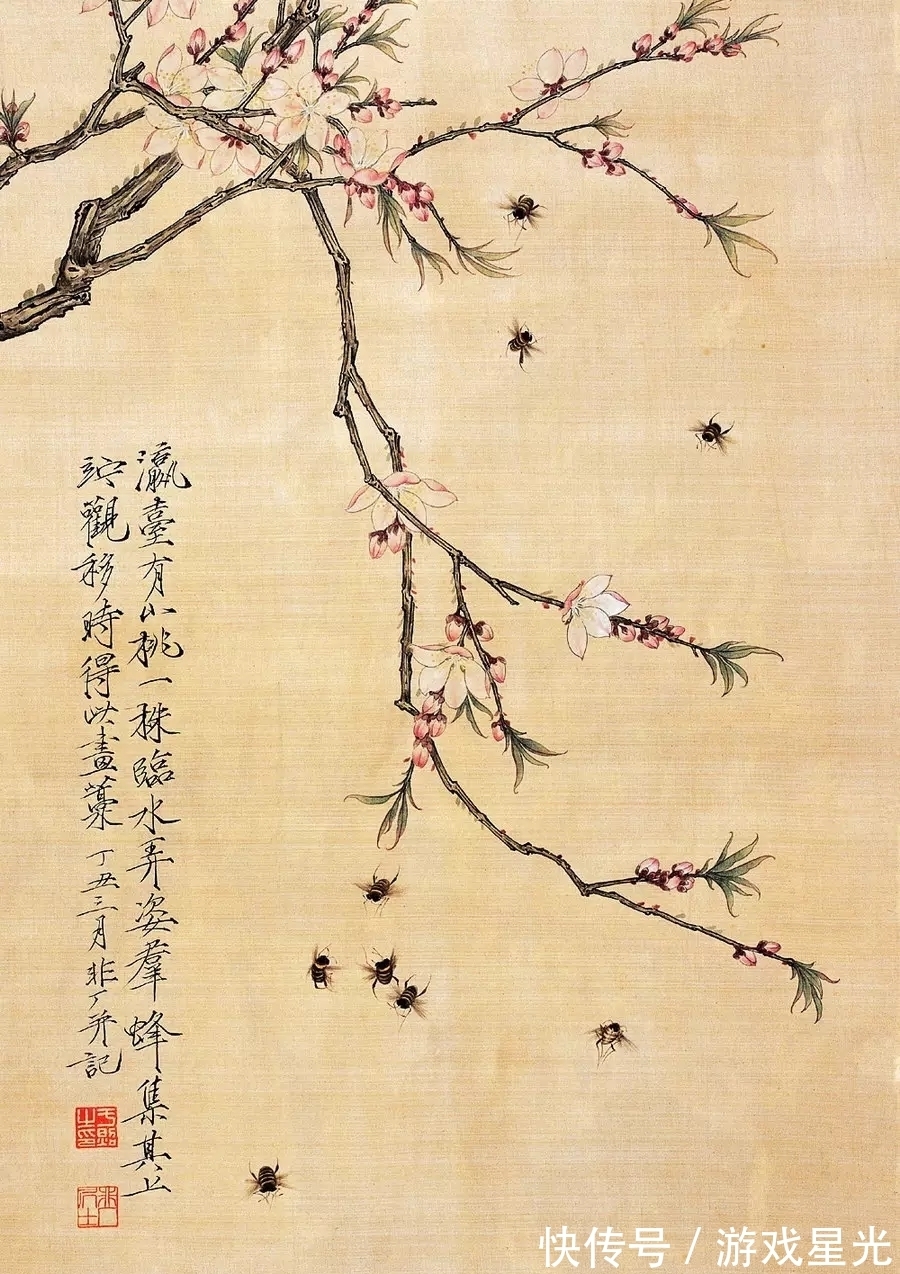 瀛臺有小桃一株臨水弄姿羣蜂集其上
諦觀移時得此畫藁 丁丑三月 非厂并記
于照之印
快传号 / 游戏星光